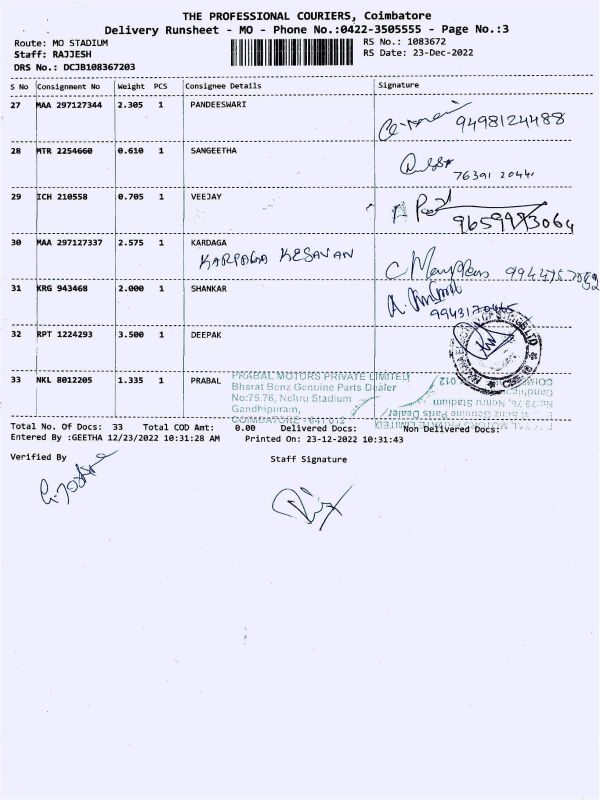 THE PROFESSIONAL COURIERS, Coimbatore
Delivery Runsheet - MO - Phone No.:0422-3505555 - Page No.:3
Route: MO STADIUM
Staff: RAJJESH
DRS No.: DCJB108367203
RS No.: 1083672
RS Date: 23-Dec-2022
S No Consignment No Weight PCS Consignee Details Signature
27 MAA 297127344 2.305 1 PANDEESWARI
9498124488
28 MTR 2254660 0.610 1 SANGEETHA
76391 20441
29 ICH 210558 0.705 1 VEEJAY
30 MAA 297127337 2.575 1 KARDAGA
KARPAGA KESAVAN
31 KRG 943468 2.000 1 SHANKAR
9943170465
32 RPT 1224293 3.500 1 DEEPAK
33 NKL 8012205 1.335 1 PRABAL
PRABAL MOTORS PRIVATE LIMITED
Bharat Benz Genuine Parts Dealer
No:75.76, Nehru Stadium
Gandhipuram,
COIMBATORE - 641 012
Total No. Of Docs: 33 Total COD Amt: 0.00 Delivered Docs: Non Delivered Docs:
Entered By :GEETHA 12/23/2022 10:31:28 AM Printed On: 23-12-2022 10:31:43
Verified By Staff Signature